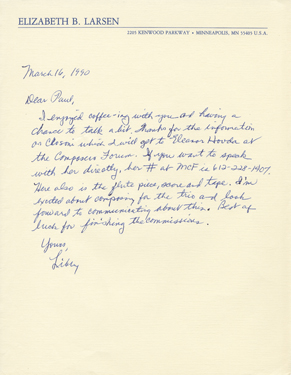 ELIZABETH B. LARSEN
2205 KENWOOD PARKWAY • MINNEAPOLIS, MN 55405 U.S.A.
March 16, 1990
Dear Paul,
I enjoyed coffee-ing with you and having a
chance to talk a bit. Thanks for the information
on Closini which I will get to Eleanor Hovda at
the Composers Forum. If you want to speak
with her directly, her # at MCF is 612-228-1407.
Here also is the flute piece, score and tape. I'm
excited about composing for the trio and look
forward to communicating about this. Best of
luck for finishing the commissions.
Yours,
Libby